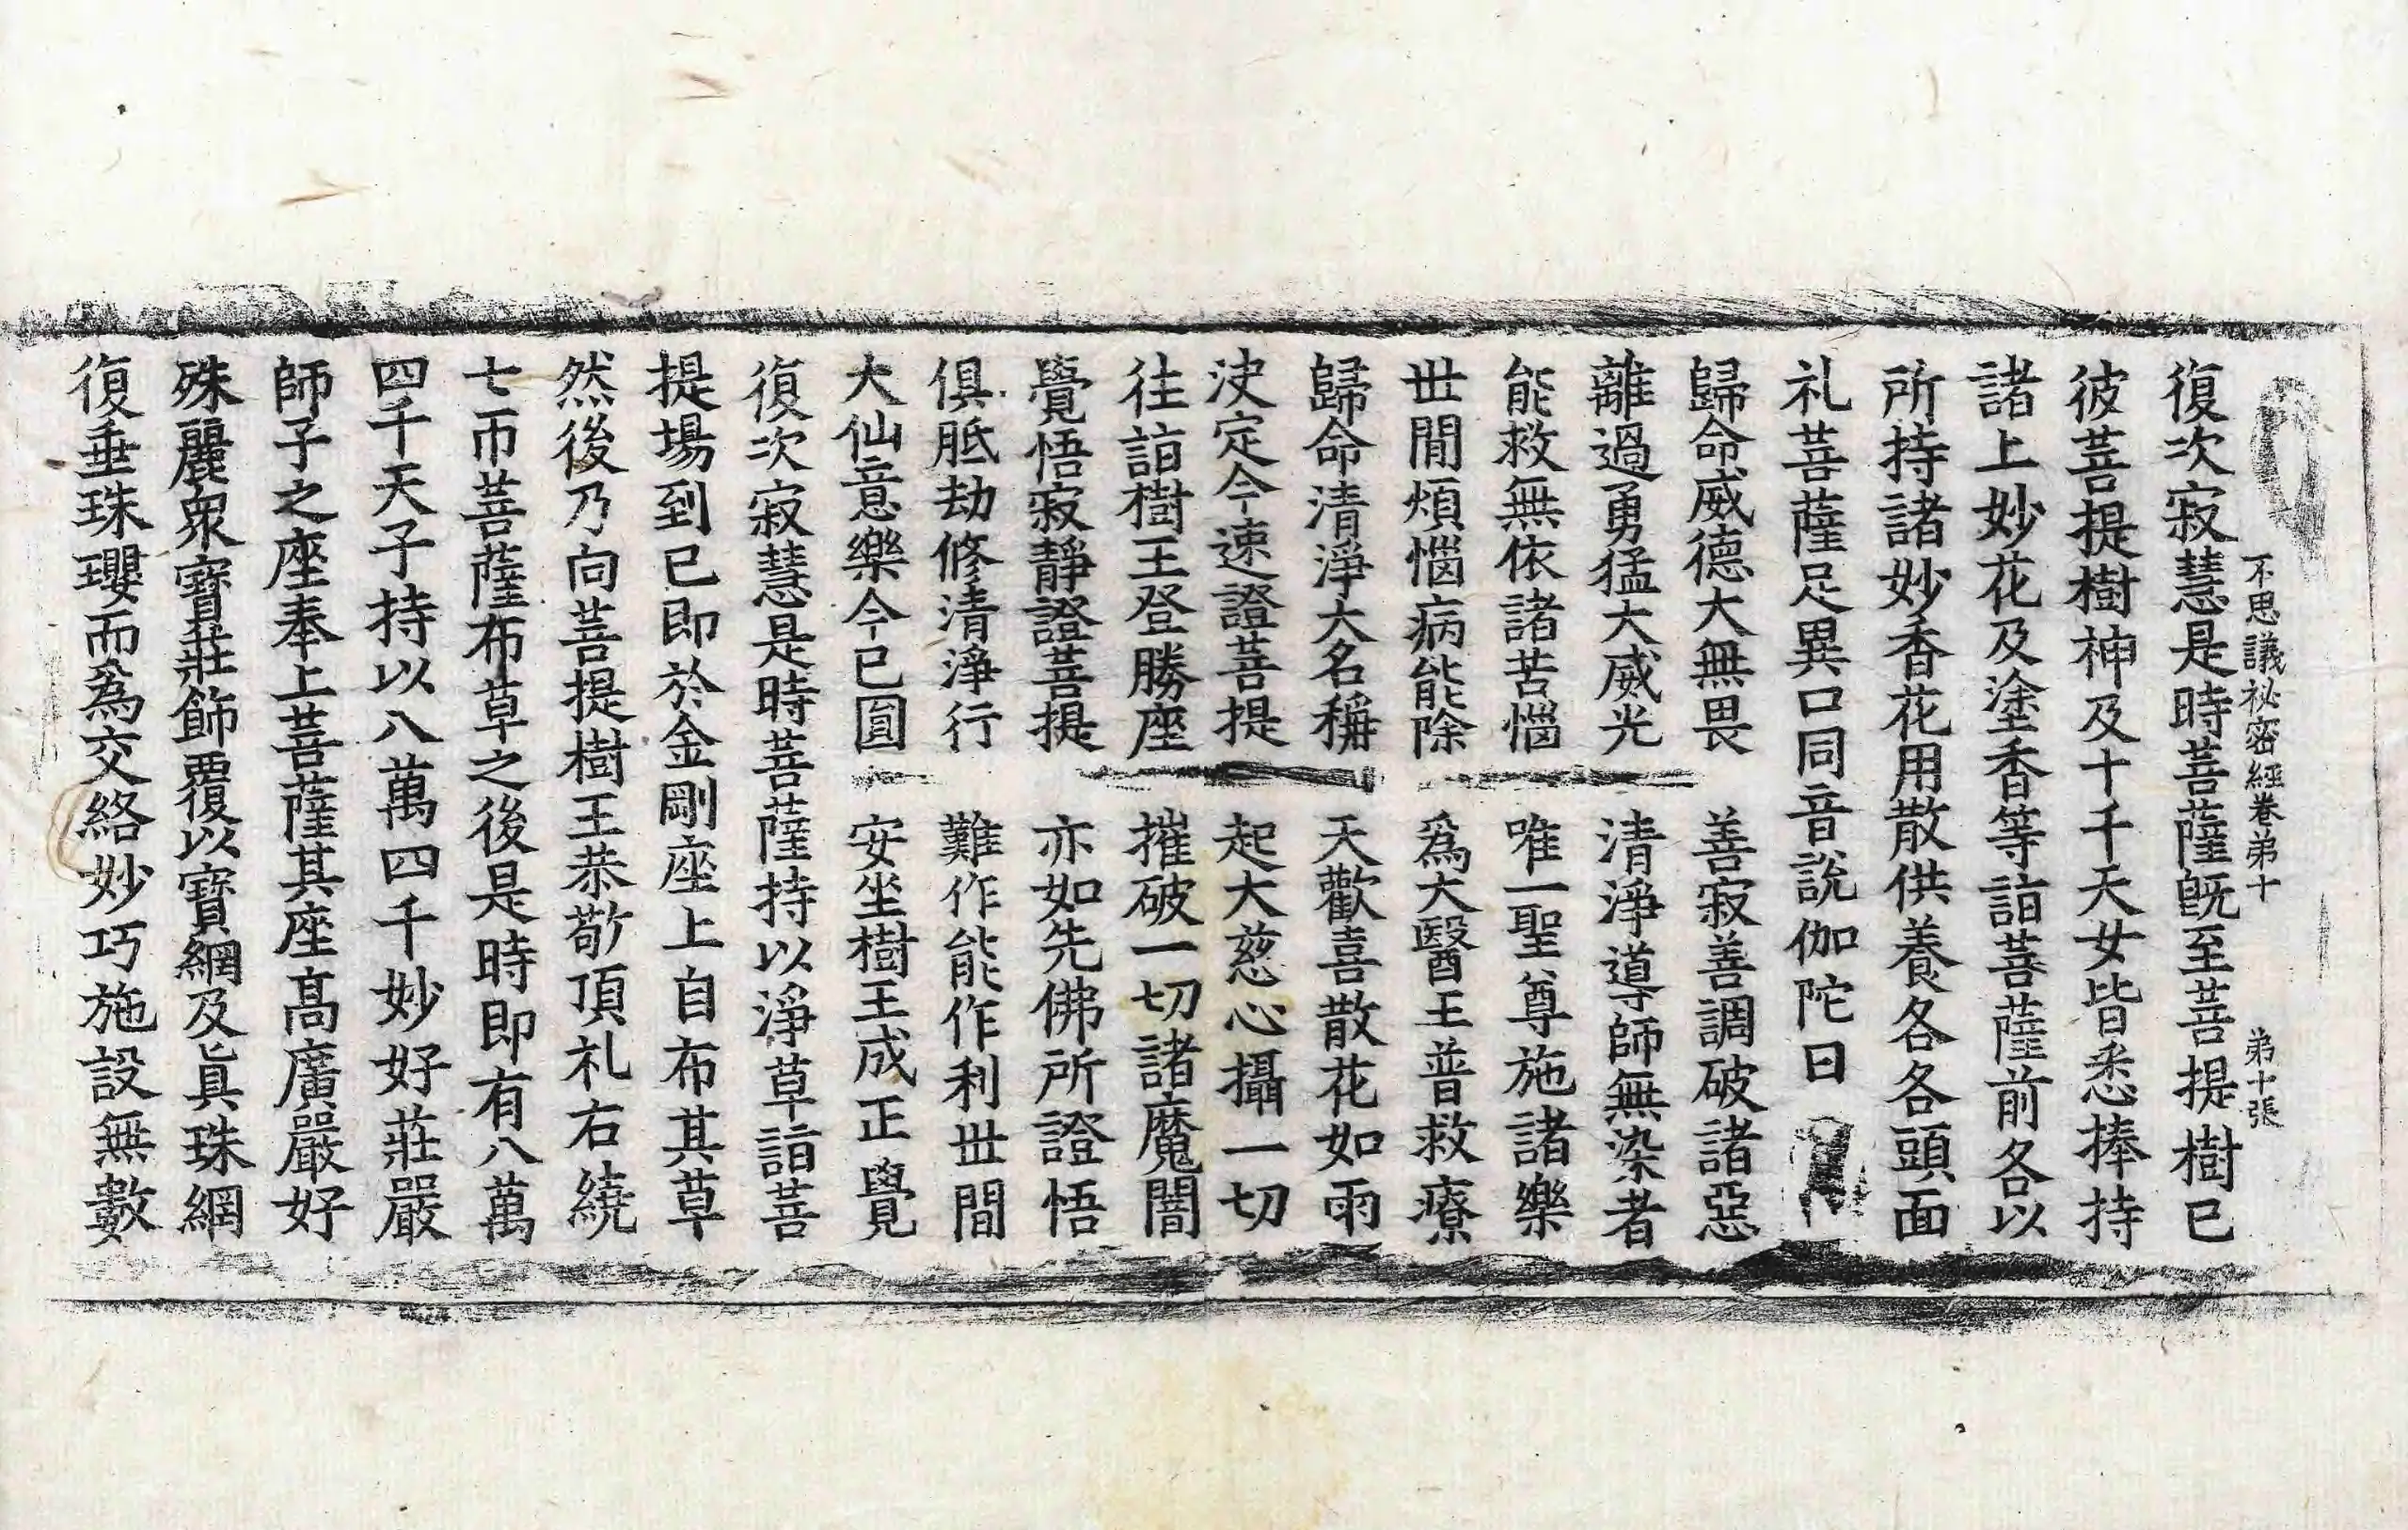 不思議祕密經卷第十　第十張
復次寂慧是時菩薩旣至菩提樹已
彼菩提樹神及十千天女皆悉捧持
諸上妙花及塗香等詣菩薩前各以
所持諸妙香花用散供養各各頭面
礼菩薩足異口同音說伽陀曰
歸命威德大無畏　善寂善調破諸惡
離過勇猛大威光　清淨導師無染者
能救無依諸苦惱　唯一聖尊施諸樂
世間煩惱病能除　爲大醫王普救療
歸命清淨大名稱　天歡喜散花如雨
决定今速證菩提　起大慈心攝一切
往詣樹王登勝座　摧破一切諸魔闇
覺悟寂靜證菩提　亦如先佛所證悟
俱胝劫修清淨行　難作能作利世間
大仙意樂今已圓　安坐樹王成正覺
復次寂慧是時菩薩持以淨草詣菩
提場到已即於金剛座上自布其草
然後乃向菩提樹王恭敬頂礼右繞
七帀菩薩布草之後是時即有八萬
四千天子持以八萬四千妙好莊嚴
師子之座奉上菩薩其座高廣嚴好
殊麗衆寶莊飾覆以寶網及眞珠網
復垂珠瓔而爲交絡妙巧施設無數